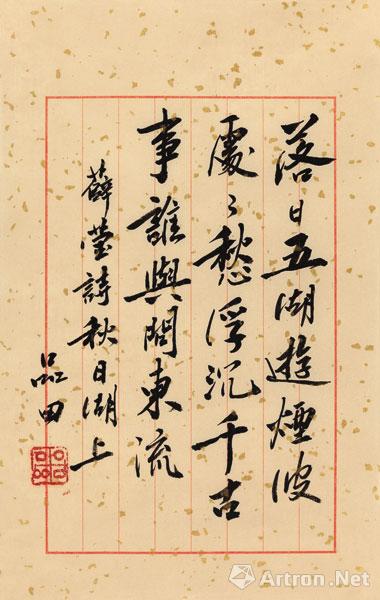 落日五湖遊煙波
處〻愁浮沉千古
事誰與問東流
薛瑩詩秋日湖上
品田
Artron.Net